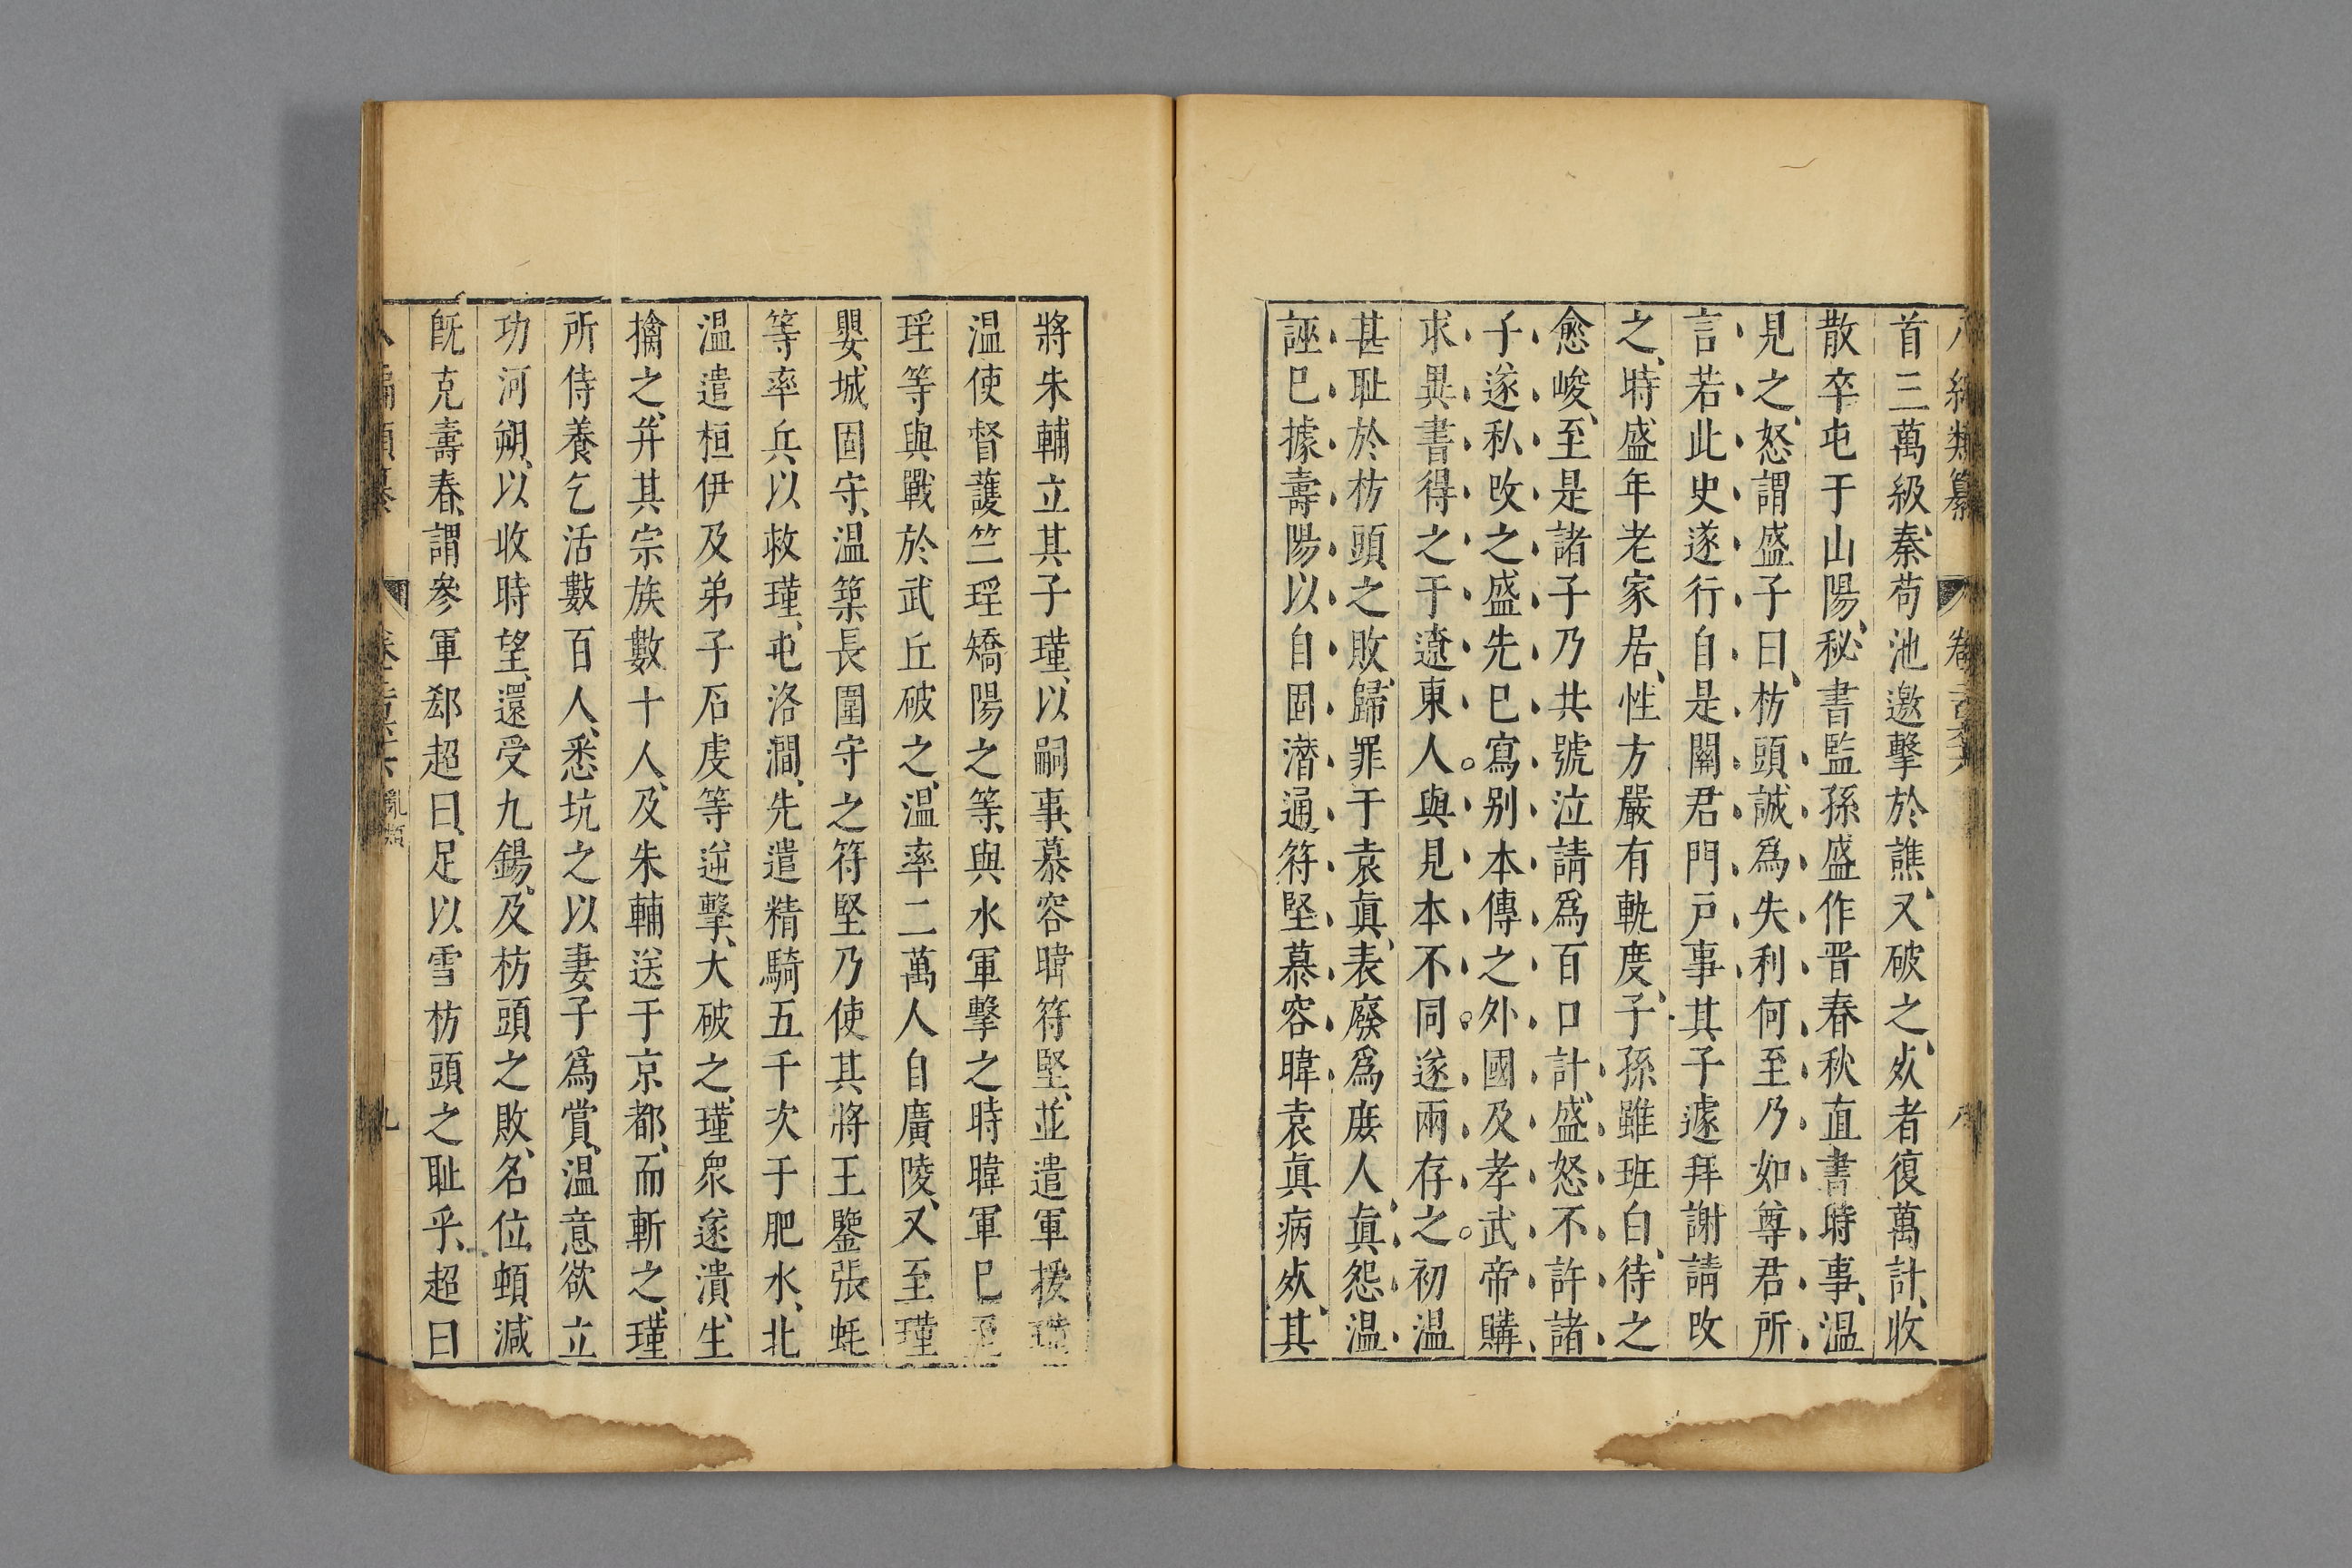 八編類纂 卷 八
首三萬級、秦苟池邀擊於譙、又破之、㱙者復萬計、收
散卒屯于山陽、秘書監孫盛作晉春秋直書時事、温
見之、怒謂盛子曰、枋頭誠爲失利何至乃如尊君所
言若此史遂行自是關君門戸事其子遽拜謝請改
之、時盛年老家居、性方嚴有軌度、子孫雖班白、待之
愈峻、至是諸子乃共號泣請爲百口計、盛怒不許諸
子遂私改之盛先已寫别本傳之外國及孝武帝購
求異書得之于遼東人與見本不同遂兩存之初温
甚耻於枋頭之敗、歸罪于袁眞、表廢爲庻人、眞怨温
誣已據壽陽以自固潛通符堅慕容暐袁眞病㱙、其
將朱輔立其子瑾、以嗣事、慕容暐符堅、並遣軍援瑾
温使督護竺瑶矯陽之等、與水軍擊之時暐軍已至
瑶等與戰於武丘破之、温率二萬人自廣陵、又至瑾
嬰城固守、温築長圍守之符堅乃使其將王鑒張蚝
等率兵以救瑾、屯洛澗、先遣精騎五千次于肥水、北
温遣桓伊及弟子石虔等逆擊、大破之、瑾衆遂潰、生
擒之、幷其宗族數十人、及朱輔送于京都、而斬之、瑾
所侍養乞活數百人、悉坑之以妻子爲賞、温意欲立
功河朔、以收時望、還受九錫、及枋頭之敗、名位頓減
旣克壽春、謂參軍郄超曰、足以雪枋頭之耻乎、超曰
八編類纂 卷 亂類 九